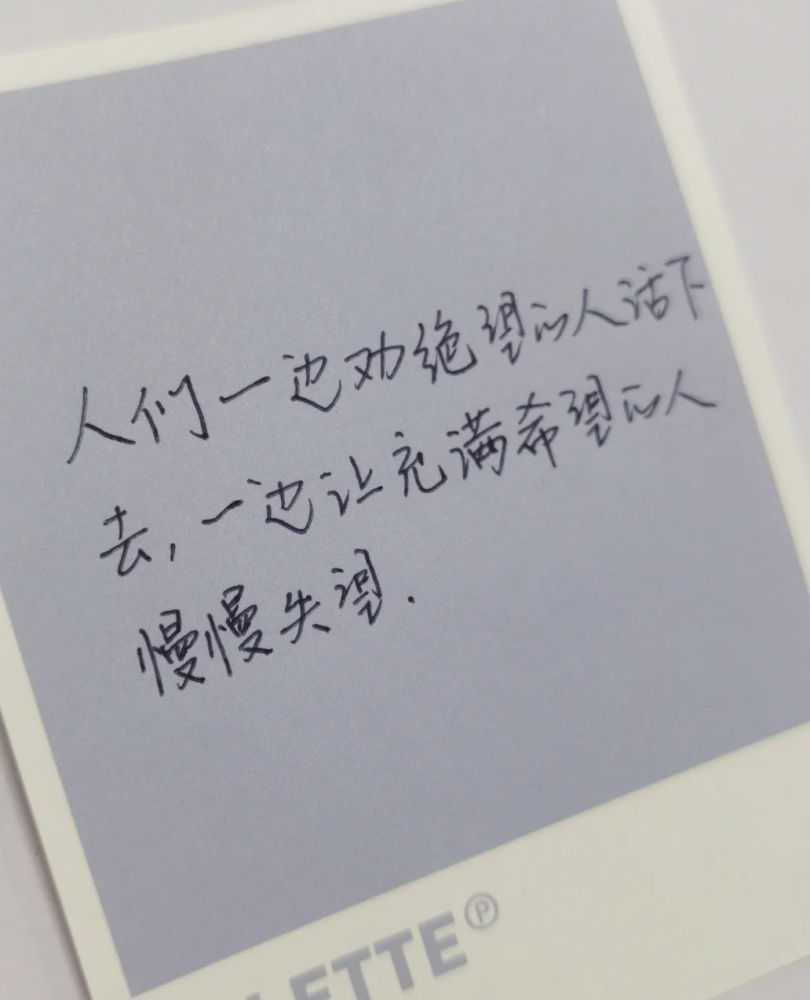 人们一边劝绝望的人活下
去,一边让充满希望的人
慢慢失望.
LETTE℗